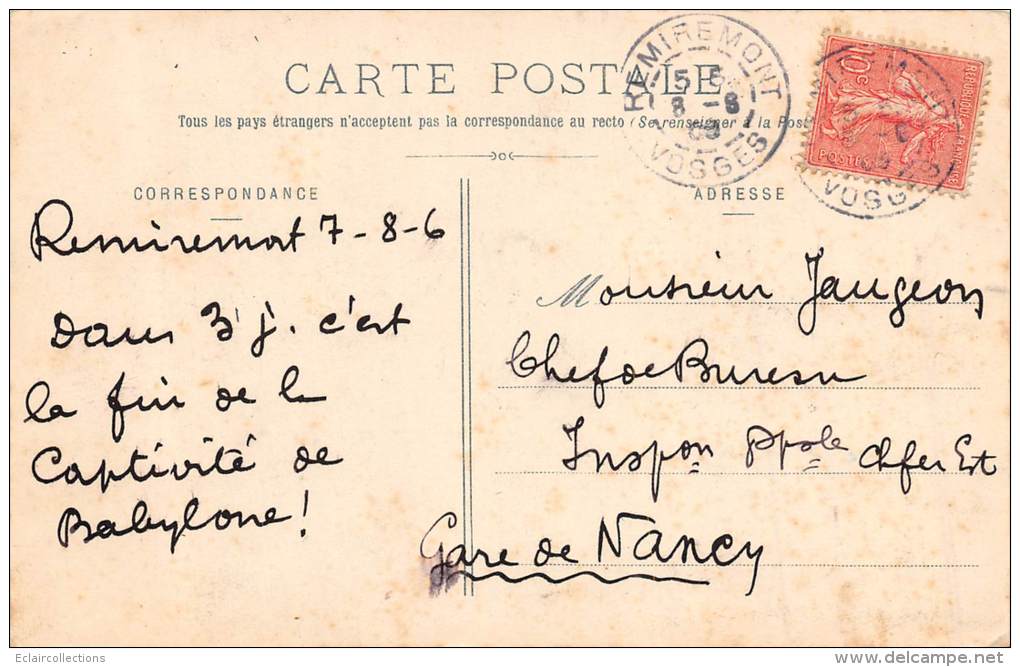 CARTE POSTALE
Tous les pays étrangers n'acceptent pas la correspondance au recto (Se renseigner à la Post
REMIREMONT
5 5
8 -8
VOSGES
10c
REPUBLIQUE FRANÇAISE
POSTES
VOSG
CORRESPONDANCE
Remiremont 7-8-6
Dans 3 j. c'est
la fin de la
Captivité de
Babylone!
ADRESSE
Monsieur Jaugeon
Chef de Bureau
Inspon Ppale Chfer Est
Gare de Nancy
Eclaircollections
www.delcampe.net